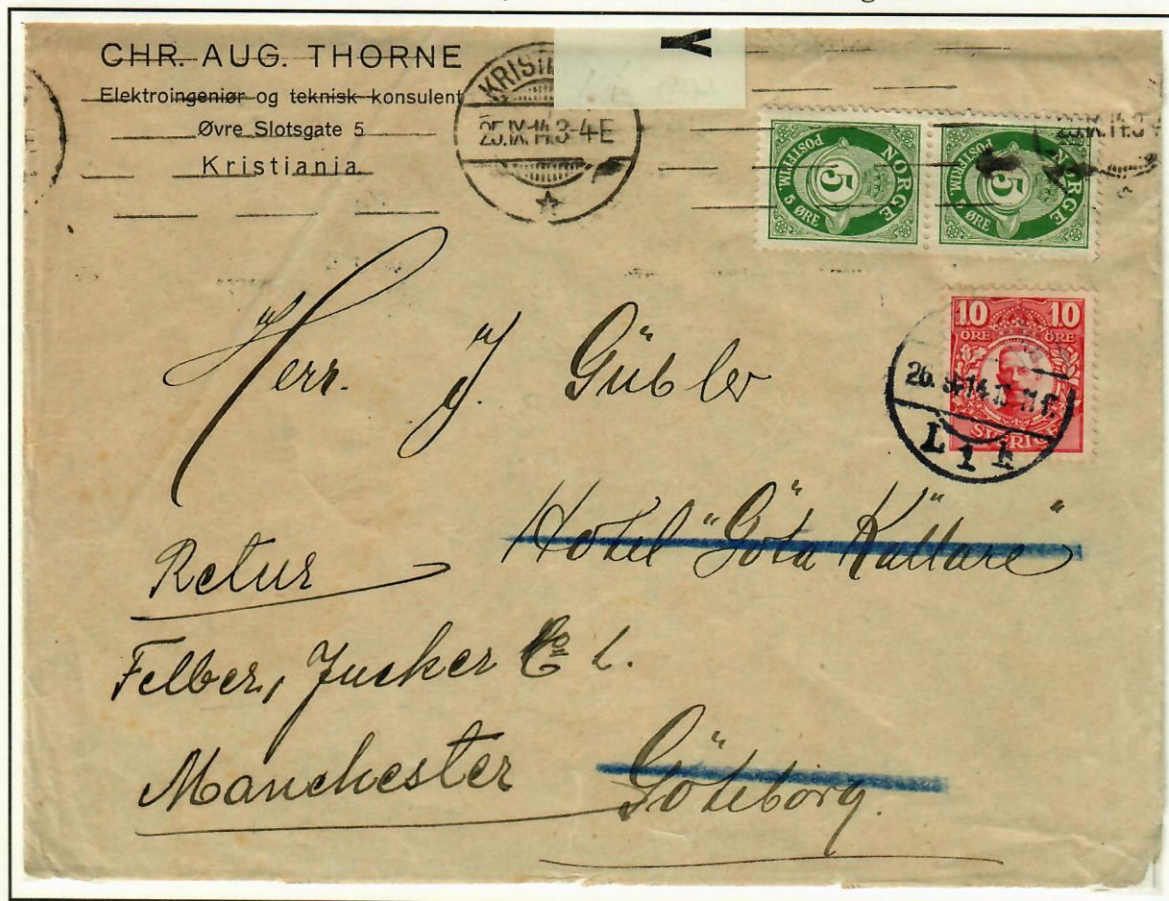 CHR. AUG. THORNE
Elektroingeniør og teknisk konsulent
Øvre Slotsgate 5
Kristiania.
25.IX.14.3-4E
Y
NORGE
5
POSTFRIM. 5 ØRE
NORGE
5
POSTFRIM. 5 ØRE
10 10
ÖRE ÖRE
SVERIGE
Herr. J. Gübler
Hotel "Göta Källare"
Retur
Felber, Jucker & Co L.
Manchester
Göteborg.